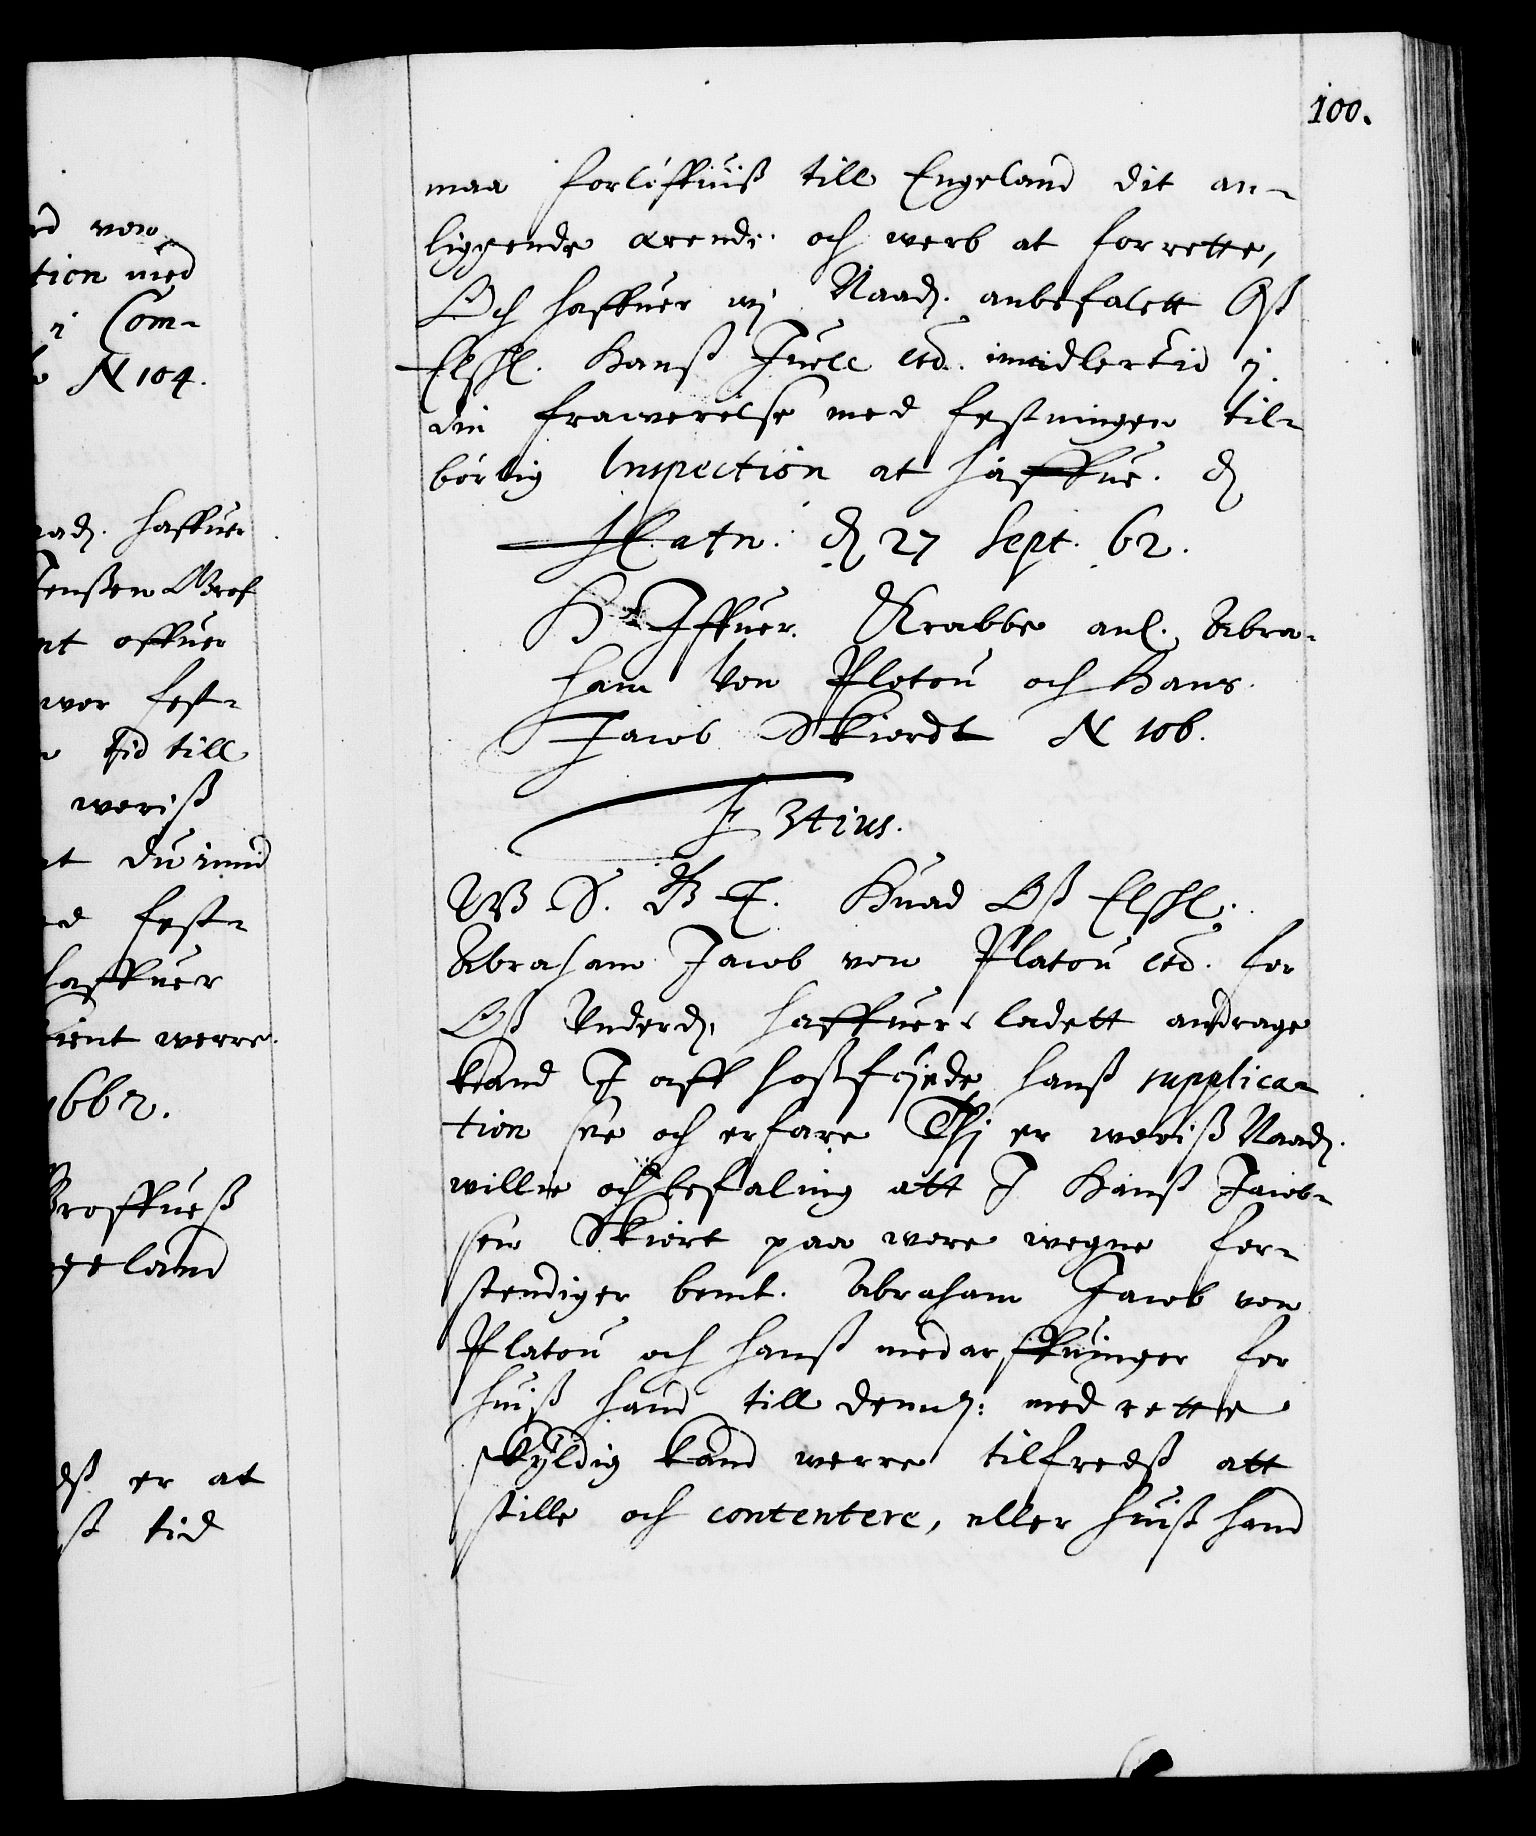 100.
rd von
tion med
i Com-
N 104.
aadj. haffuer
Jenßen Grof
nt offuer
wor fest-
tid till
woriß
at du imid
ed fest-
haffuer
tient werre.
1662.
Groffueß
ngeland
dß er at
ß tid
maa forløffuiß till Engeland dit an-
liggende ærende och werb at forrette,
Och haffuer wj Naadj. anbefalett Oß
Elschl. Hanß Juell etc. imidlertid j
din frawerelse med festningen til-
børlig Inspection at haffue. dj
Hafn. dj 27 Sept. 62.
Hr Iffuer Krabbe anl. Abra-
ham von Platou och Hans
Jacob Skiordt N 106.
F 3tius.
W S. G T. Huad Oß Elschl.
Abraham Jacob von Platou etc. for
Oß Underdj. haffuer ladett andrage
kand I aff hoßføyede hanß supplica-
tion see och erfare Thj er woriß Naadj.
willie och befaling att I Hanß Jacob-
sen Skiort paa wore wegne for-
stendiger bemt. Abraham Jacob von
Platou och hanß medarffuinger for
huiß hand till dennem med rette
skyldig kand werre tilfredß att
stille och contentere, eller huiß hand